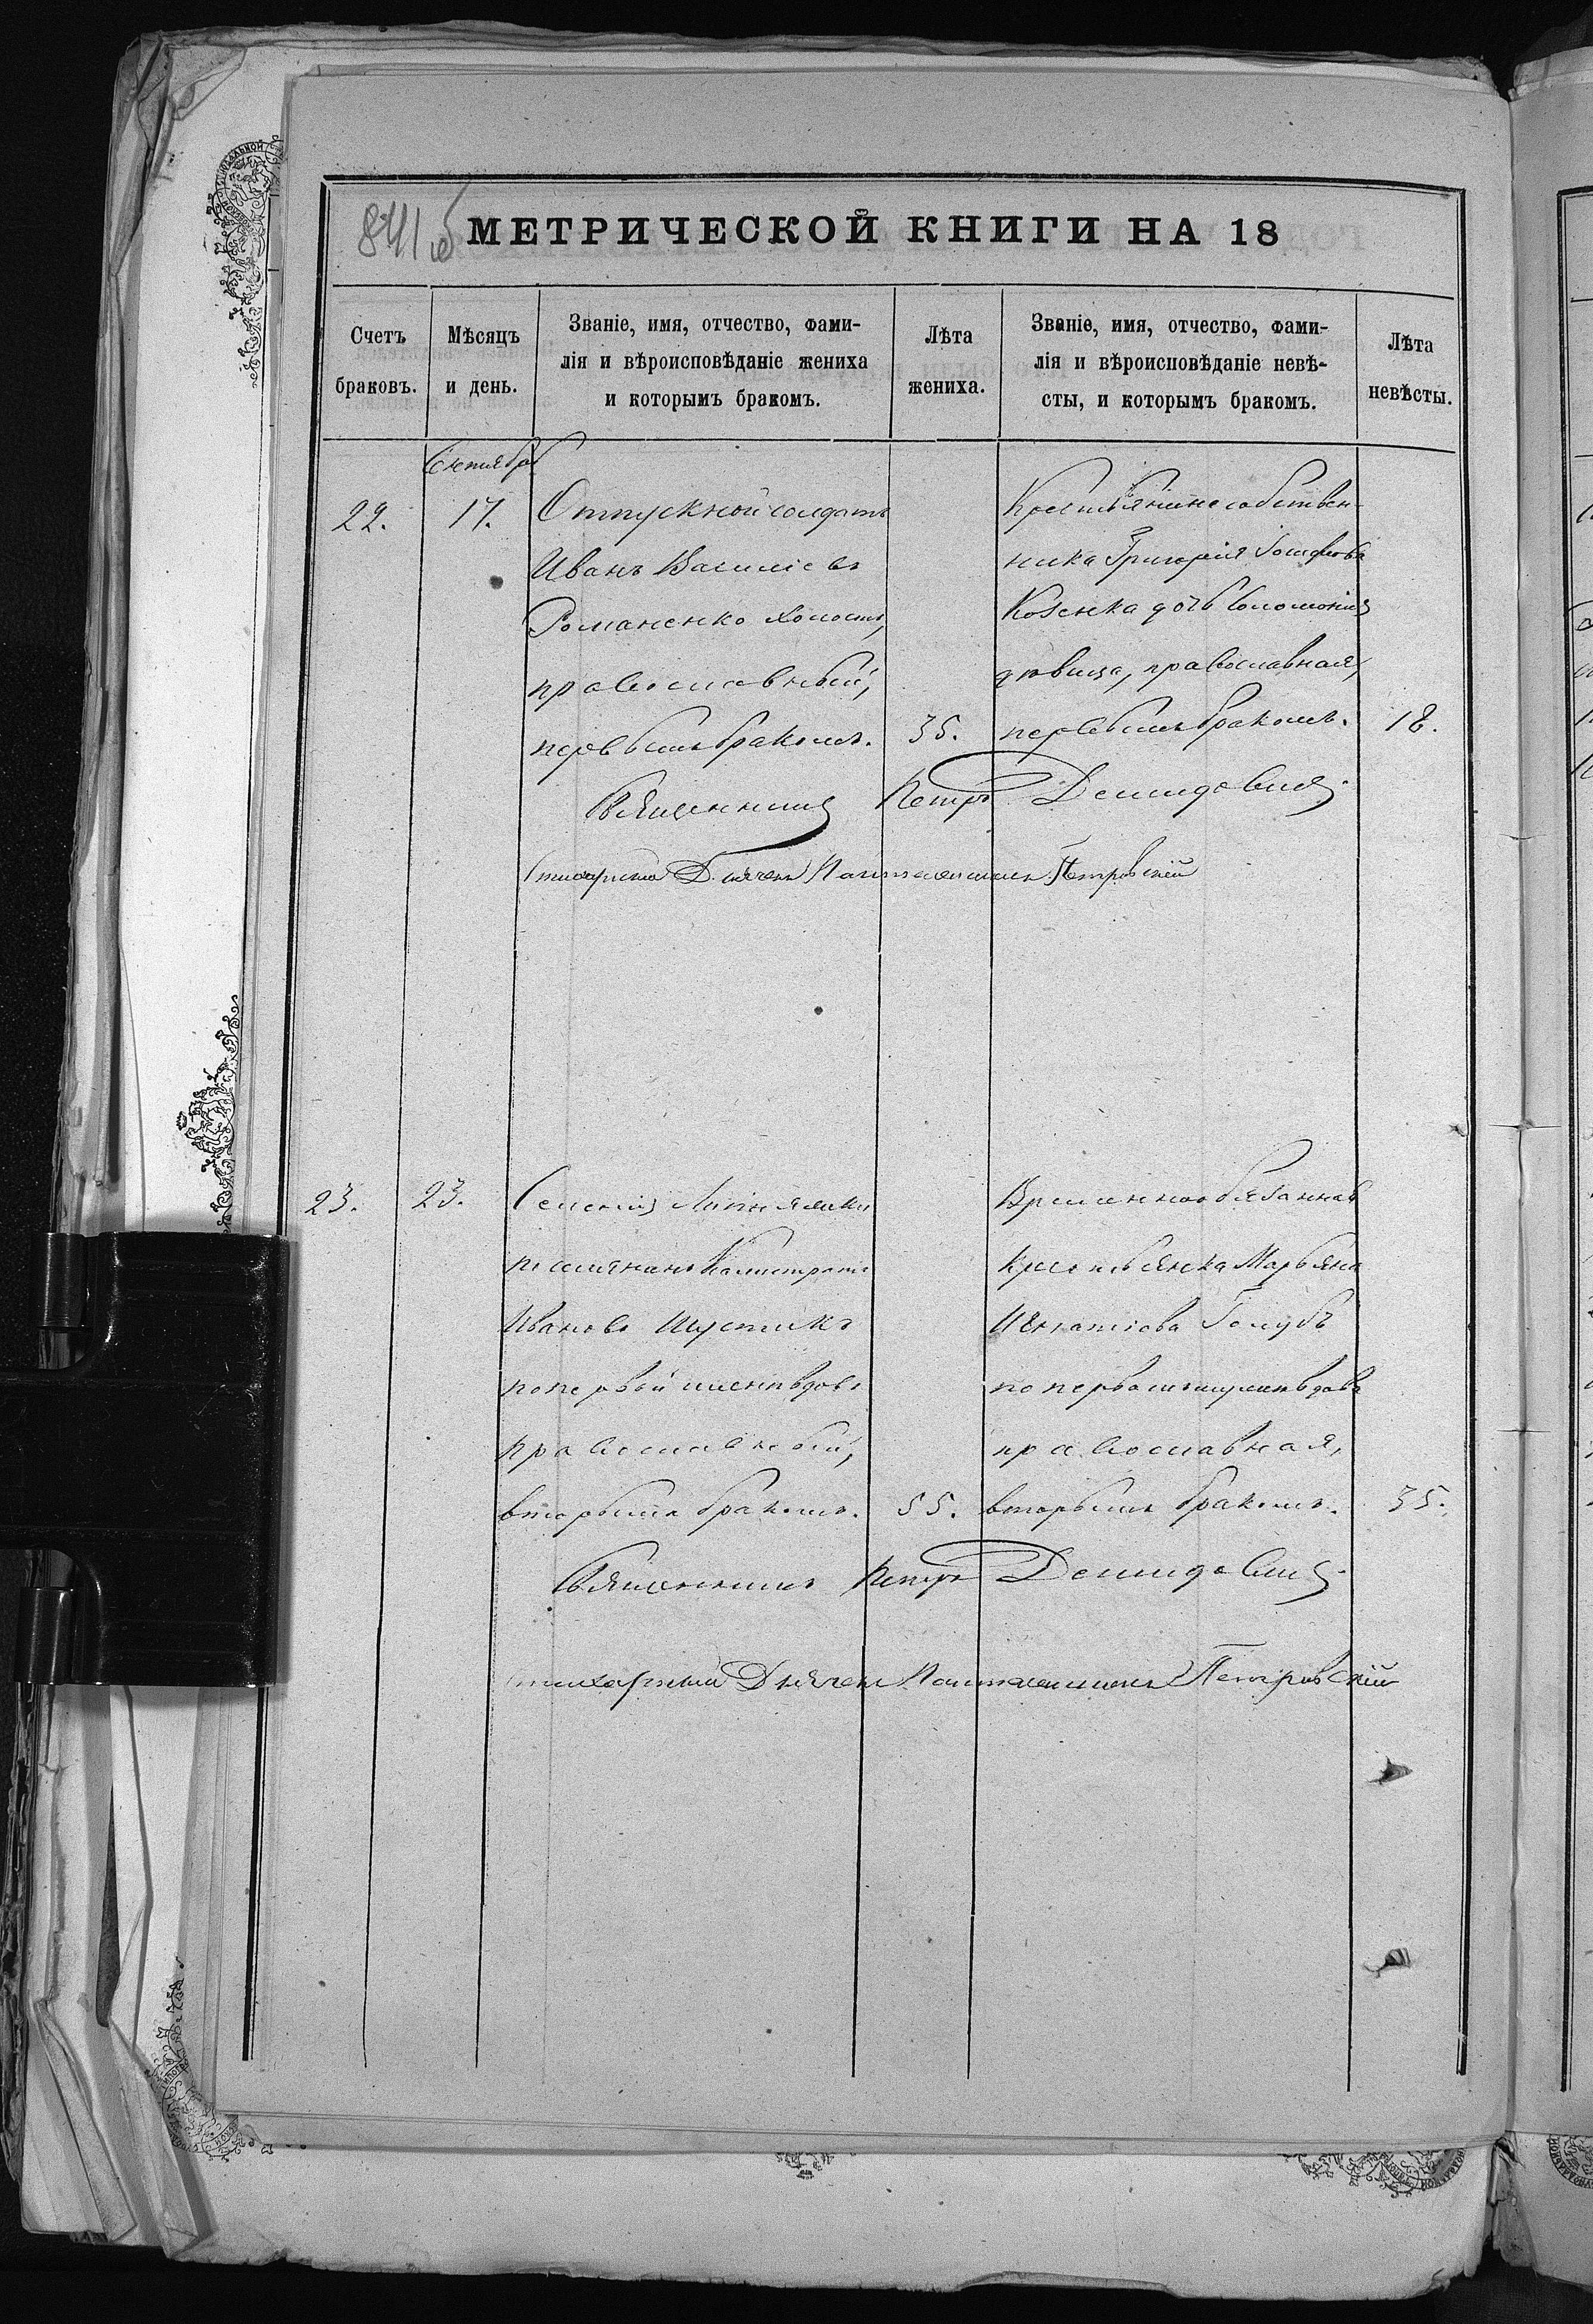 841 об
МЕТРИЧЕСКОЙ КНИГИ НА 18
Счетъ браковъ.
Мѣсяцъ и день.
Званіе, имя, отчество, фами-
лія и вѣроисповѣданіе жениха
и которымъ бракомъ.
Лѣта жениха.
Званіе, имя, отчество, фами-
лія и вѣроисповѣданіе невѣ-
сты, и которымъ бракомъ.
Лѣта невѣсты.
Сентябрь
22.
17.
Отпускной солдатъ
Иванъ Василіевъ
Романенко холостъ,
православный,
первымъ бракомъ.
35.
Крестьянина собствен-
ника Григорія
Козенка дочь Соломонія
дѣвица, православная,
первымъ бракомъ.
18.
Священникъ Петръ Демидовичъ.
Стихарный Дьячекъ Пантелеимонъ Петровскій
23.
23.
Селенія
поселянинъ Калистратъ
Ивановъ Шустикъ
по первой женѣ вдовъ
православный,
вторымъ бракомъ.
55.
Временнообязанная
крестьянка Марьяна
Игнатіева Голубъ
по первомъ мужѣ вдова
православная,
вторымъ бракомъ.
35.
Священникъ Петръ Демидовичъ.
Стихарный Дьячекъ Пантелеимонъ Петровскій